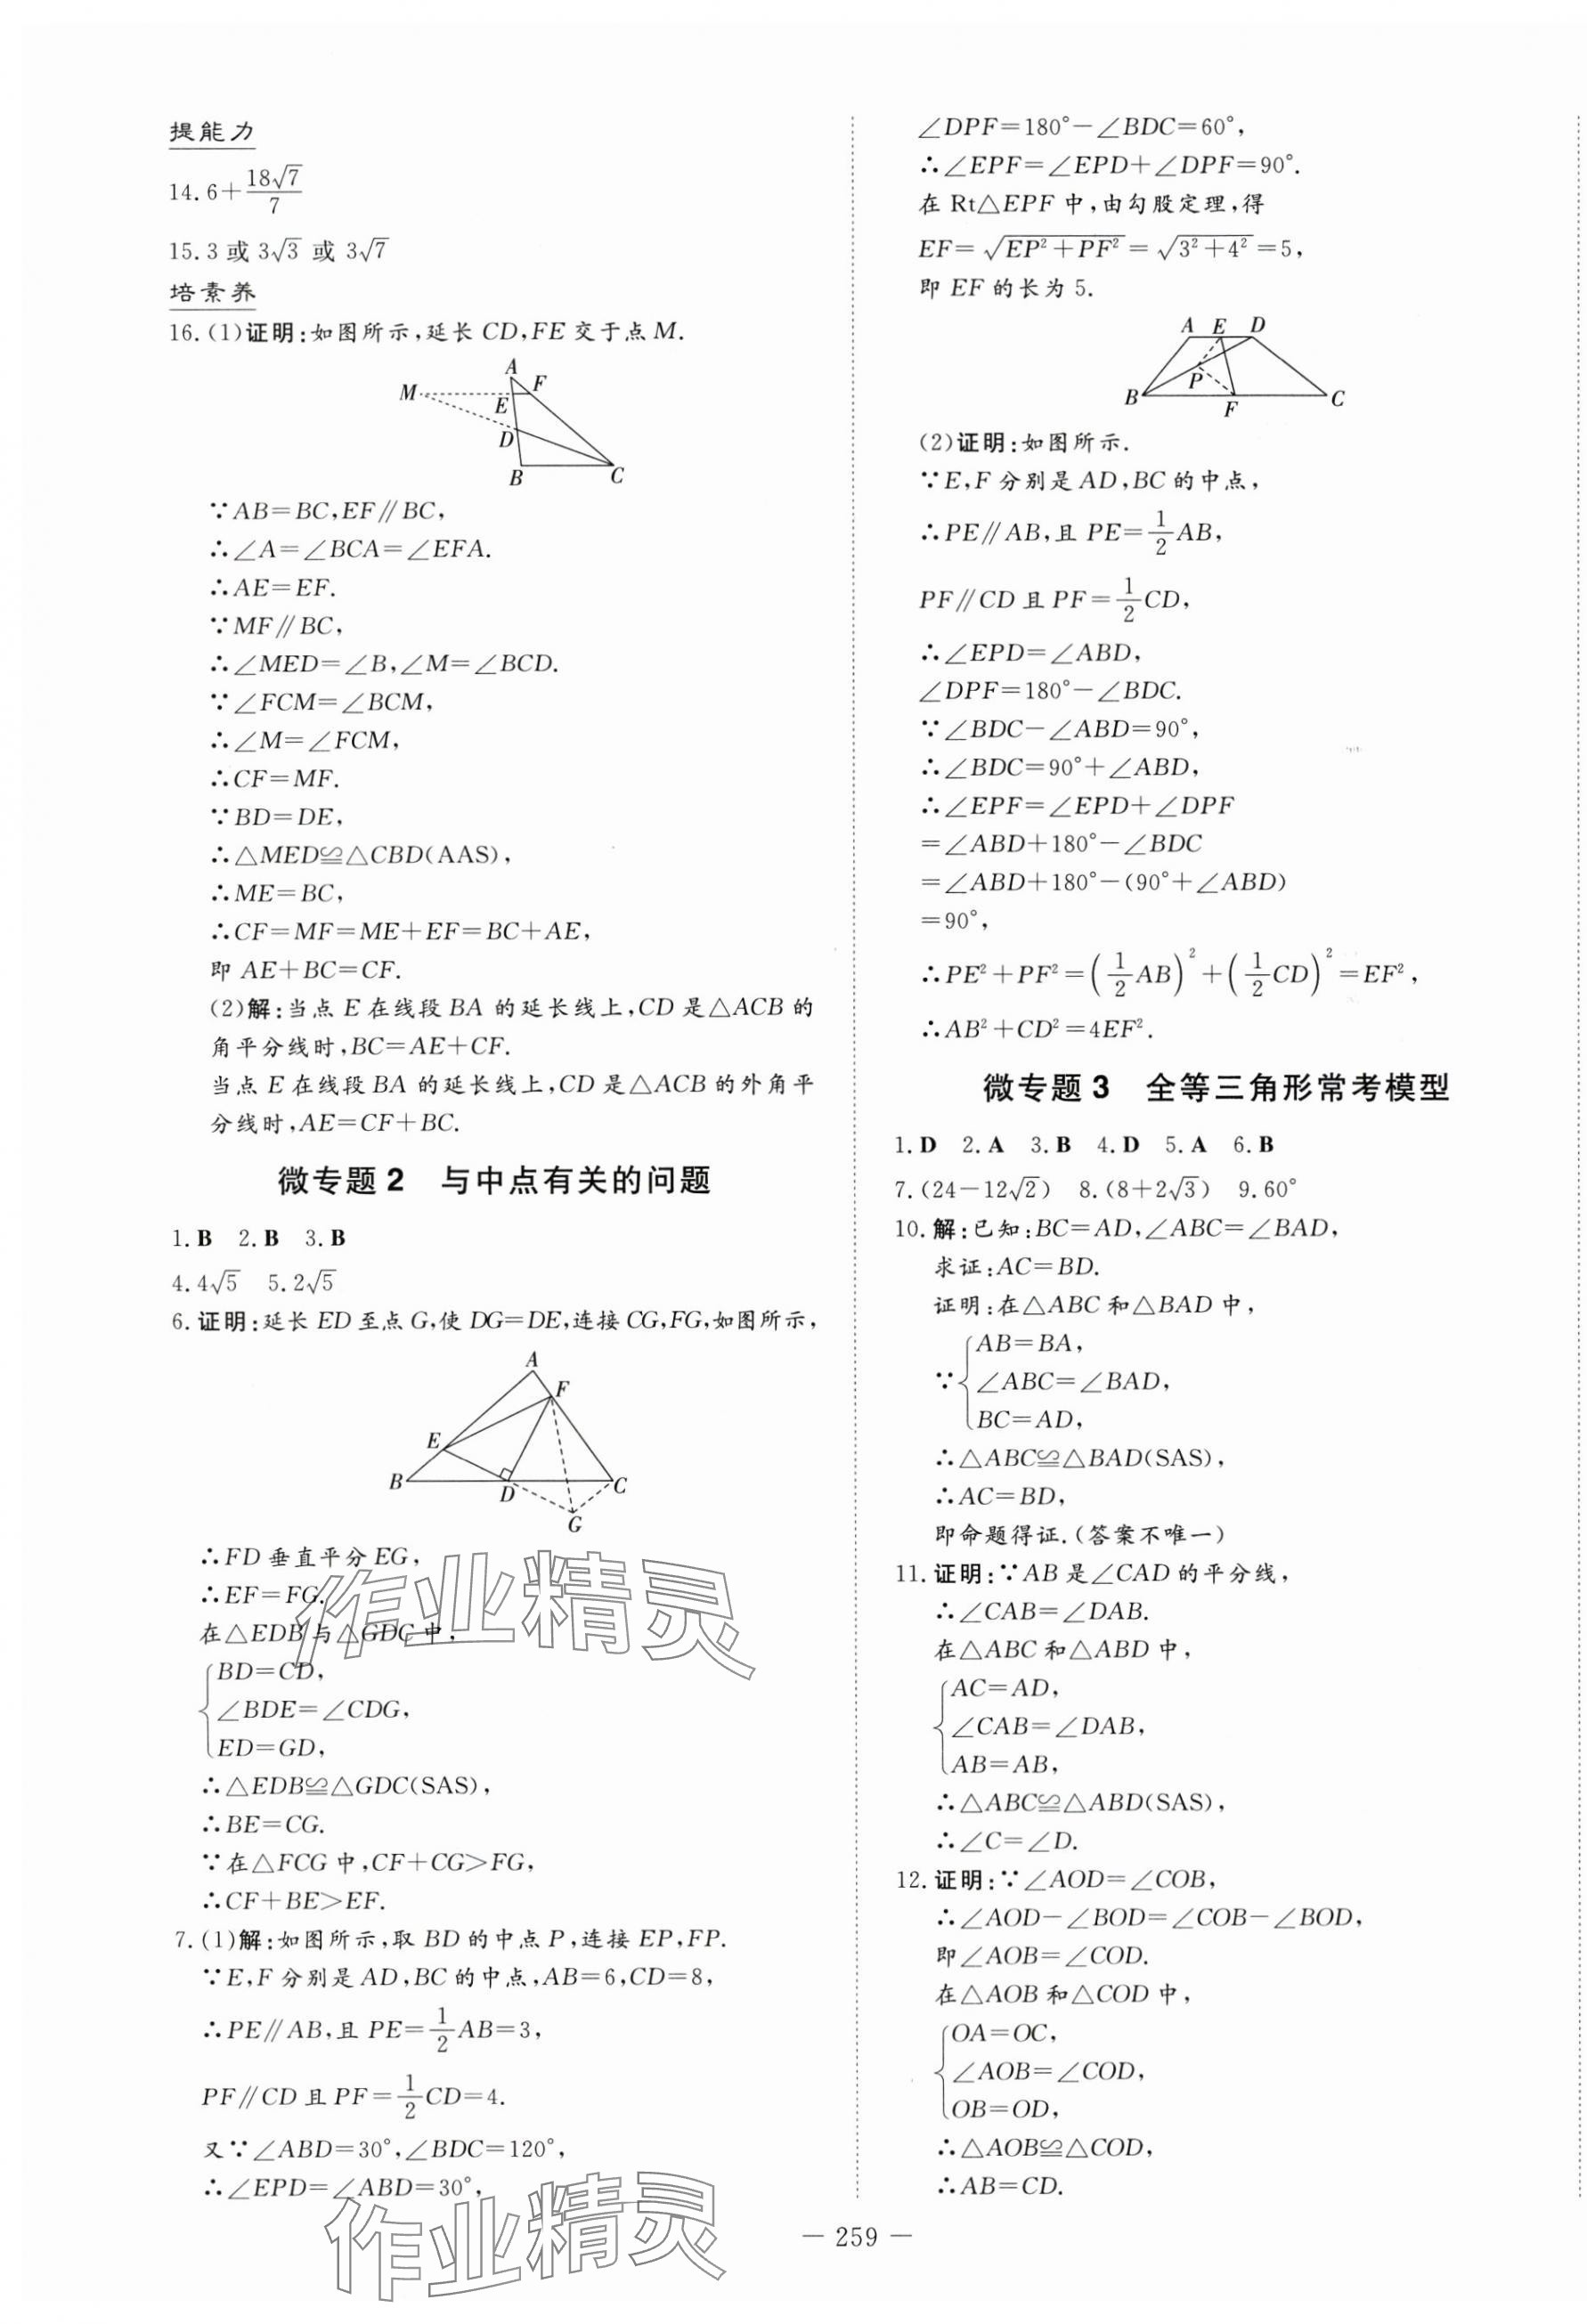 提能力
14.6+18√7/7
15.3 或 3√3 或 3√7
培素养
16.(1)证明:如图所示,延长 CD,FE 交于点 M.
A
F
M
E
D
B
C
∵AB=BC,EF∥BC,
∴∠A=∠BCA=∠EFA.
∴AE=EF.
∵MF∥BC,
∴∠MED=∠B,∠M=∠BCD.
∵∠FCM=∠BCM,
∴∠M=∠FCM,
∴CF=MF.
∵BD=DE,
∴△MED≌△CBD(AAS),
∴ME=BC,
∴CF=MF=ME+EF=BC+AE,
即 AE+BC=CF.
(2)解:当点 E 在线段 BA 的延长线上,CD 是△ACB 的
角平分线时,BC=AE+CF.
当点 E 在线段 BA 的延长线上,CD 是△ACB 的外角平
分线时,AE=CF+BC.
微专题 2 与中点有关的问题
1.B 2.B 3.B
4.4√5 5.2√5
6.证明:延长 ED 至点 G,使 DG=DE,连接 CG,FG,如图所示,
A
F
E
B
D
C
G
∴FD 垂直平分 EG,
∴EF=FG.
在△EDB 与△GDC 中,
BD=CD,
∠BDE=∠CDG,
ED=GD,
∴△EDB≌△GDC(SAS),
∴BE=CG.
∵在△FCG 中,CF+CG>FG,
∴CF+BE>EF.
7.(1)解:如图所示,取 BD 的中点 P,连接 EP,FP.
∵E,F 分别是 AD,BC 的中点,AB=6,CD=8,
∴PE∥AB,且 PE=1/2AB=3,
PF∥CD 且 PF=1/2CD=4.
又∵∠ABD=30°,∠BDC=120°,
∴∠EPD=∠ABD=30°,
∠DPF=180°-∠BDC=60°,
∴∠EPF=∠EPD+∠DPF=90°.
在 Rt△EPF 中,由勾股定理,得
EF=√(EP²+PF²)=√(3²+4²)=5,
即 EF 的长为 5.
A E D
P
B
F
C
(2)证明:如图所示.
∵E,F 分别是 AD,BC 的中点,
∴PE∥AB,且 PE=1/2AB,
PF∥CD 且 PF=1/2CD,
∴∠EPD=∠ABD,
∠DPF=180°-∠BDC.
∵∠BDC-∠ABD=90°,
∴∠BDC=90°+∠ABD,
∴∠EPF=∠EPD+∠DPF
=∠ABD+180°-∠BDC
=∠ABD+180°-(90°+∠ABD)
=90°,
∴PE²+PF²=(1/2AB)²+(1/2CD)²=EF²,
∴AB²+CD²=4EF².
微专题 3 全等三角形常考模型
1.D 2.A 3.B 4.D 5.A 6.B
7.(24-12√2) 8.(8+2√3) 9.60°
10.解:已知:BC=AD,∠ABC=∠BAD,
求证:AC=BD.
证明:在△ABC 和△BAD 中,
AB=BA,
∵ ∠ABC=∠BAD,
BC=AD,
∴△ABC≌△BAD(SAS),
∴AC=BD,
即命题得证.(答案不唯一)
11.证明:∵AB 是∠CAD 的平分线,
∴∠CAB=∠DAB.
在△ABC 和△ABD 中,
AC=AD,
∠CAB=∠DAB,
AB=AB,
∴△ABC≌△ABD(SAS),
∴∠C=∠D.
12.证明:∵∠AOD=∠COB,
∴∠AOD-∠BOD=∠COB-∠BOD,
即∠AOB=∠COD.
在△AOB 和△COD 中,
OA=OC,
∠AOB=∠COD,
OB=OD,
∴△AOB≌△COD,
∴AB=CD.
— 259 —
作业精灵
作业精灵